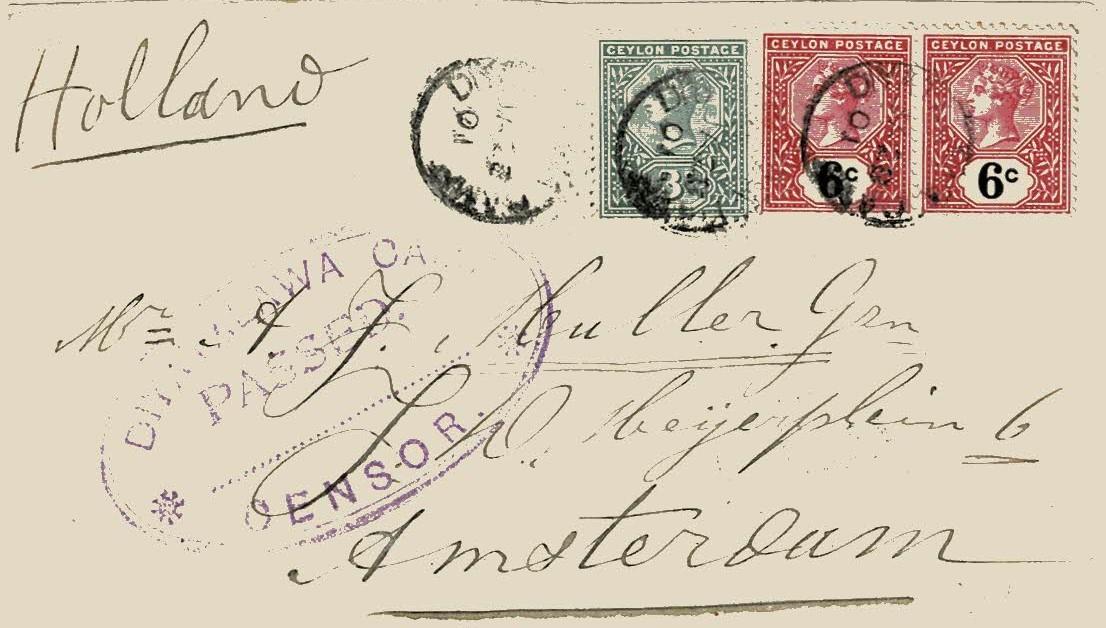 Holland
CEYLON POSTAGE
3
CEYLON POSTAGE
6c
CEYLON POSTAGE
6c
01
01
01
PASSED.
CENSOR.
Mr A J. Muller Grn
J. W. Meijerplein 6
Amsterdam